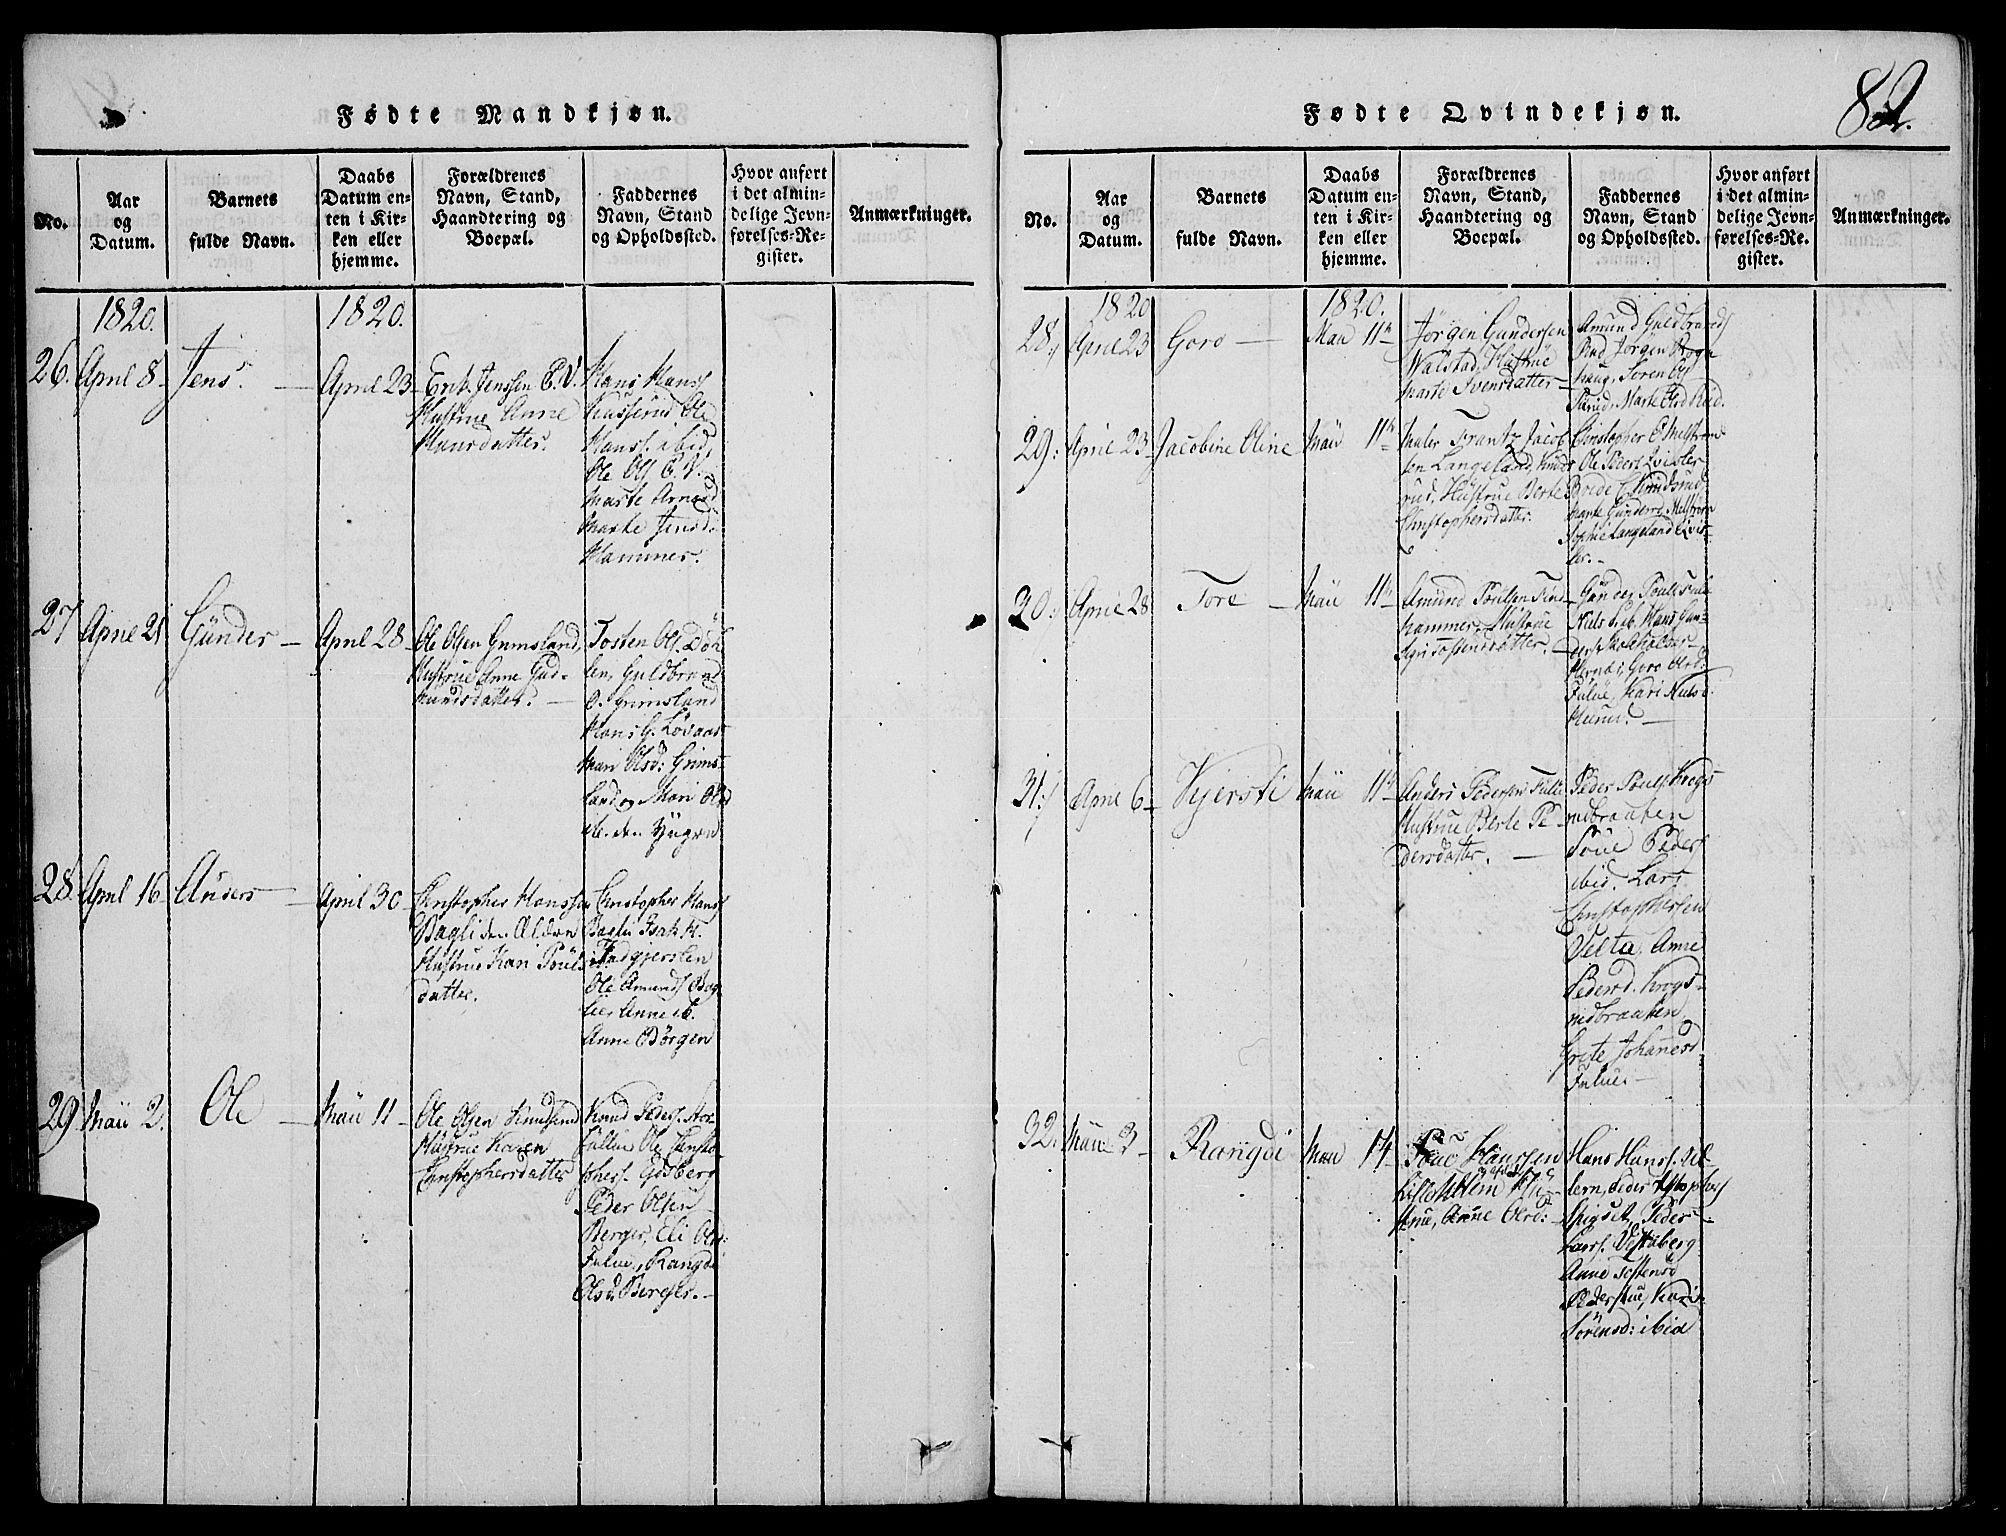 Fødte Mandkjøn.
No.
Aar
og
Datum.
Barnets
fulde Navn.
Daabs
Datum en-
ten i Kir-
ken eller
hjemme.
Forældrenes
Navn, Stand,
Haandtering og
Boepæl.
Faddernes
Navn, Stand
og Opholdssted.
Hvor anført
i det almin-
delige Jevn-
førelses-Re-
gister.
Anmærkninger.
1820.
1820.
26.
April 8
Jens.
April 23
Erik Jenssen E. V.
Hustrue Anne
Hansdatter.
Hans Hanss
Ole
Hanss. ibid,
Ole Ols E. V.
Marte
Marte Jensd:
Hammer.
27
April 21
Günder
April 28
Ole Olsen Grimsland,
Hustrue Anne Gud-
mundsdatter.
Tosten Ols. Døh
len, Guldbrand
O. Grimsland
Hans G. Løvaas
Mari Olsd: Grims-
land og Mari Olsd
ib. den Yngre
28.
April 16
Anders
April 30
Christopher Hanssen
Bagli den Ældre
Hustrue Kari Pouls
datter.
Christopher Hanss
Bagli Isak H.
Ole Amunds Bag
lie, Anne ib.
Anne Børgen
29
Maii 2.
Ole
Maii 11
Ole Olsen Knudsrud
Hustrue Karen
Christophersdatter
Knud Peders.
Ole Christo
phers. Gidsberg
Peder Olsen
Berger, Eli Olsd:
Fulue, Rangdi
Olsd. Berger.
Fødte Qvindekjøn.
82.
No.
Aar
og
Datum.
Barnets
fulde Navn.
Daabs
Datum en-
ten i Kir-
ken eller
hjemme.
Forældrenes
Navn, Stand,
Haandtering og
Boepæl.
Faddernes
Navn, Stand
og Opholdssted.
Hvor anført
i det almin-
delige Jevn-
førelses-Re-
gister.
Anmærkninger.
1820
1820.
28.
April 23
Goro
Maii 11
Jørgen Gundersen
Walstad, Hustrue
Marte Iversdatter
Amund Guldbrands
Rud, Jørgen Rogn
haug, Søren Ols
Marte Rud.
29.
April 23
Jacobine Oline
Maii 11
Maler Frantz Jacob
sen Langeland, Knuds
rud, Hustrue Berte
Christophersdatter.
Christopher E. Melstrom
Ole Peders Qvisler
Knudsrud
Marte Gunders. Melstrom
Sophie Langeland Qvis-
ler.
30.
April 28
Tore
Maii 11
Amund Poulsen Find-
hammer, Hustrue
Sigri Tostensdatter.
Gunder Pouls
Niels ib. Hans Gun-
ders.
Goro Olsd.
Fulue, Kari Nielsd.
31.
April 6
Kjersti
Maii 11
Anders Pedersen Fulue
Hustrue Berte Pe-
dersdatter.
Peder Pouls Krogs
rudbraaten
Poue Peders
ibid. Lars
Christophersen
Velta, Anne
Pedersd. Krogs-
rudbraaten
Grete Johannesd
Fulue
32.
Maii 3
Rangdi
Maii 14
Poue Hanssen
Hu-
strue, Anne Olsd:
Hans Hanss.
Peder
Spigset, Peder
Larss. Vestaberg
Anne Tostensd
Pederstue, Kari
Sørensd: ibid